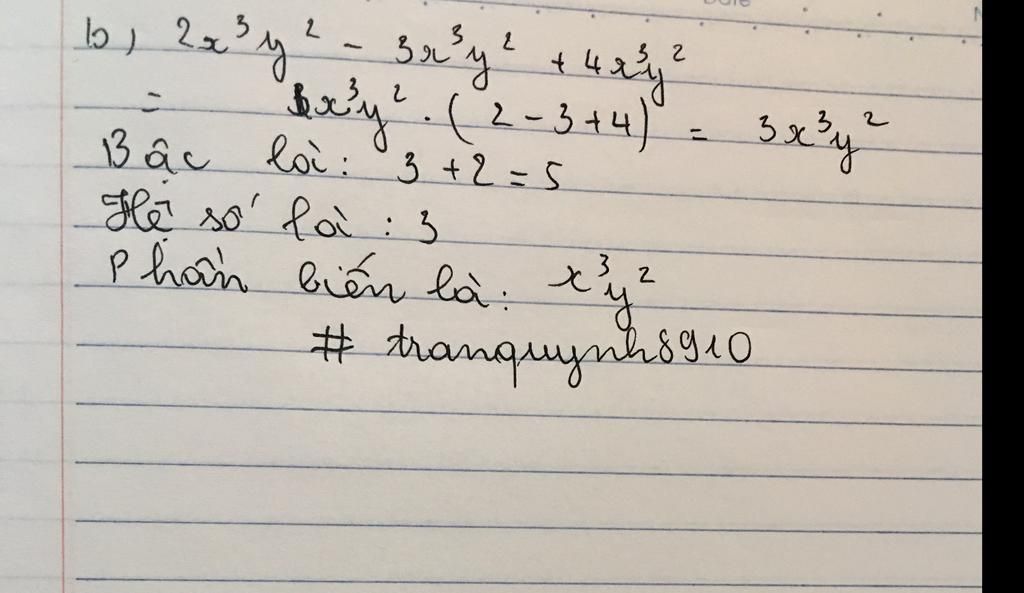 b, 2x³y² - 3x³y² + 4x³y²
= x³y² . ( 2 - 3 + 4 ) = 3x³y²
Bậc là: 3 + 2 = 5
Hệ số là : 3
Phần biến là: x³y²
# tranquynh8910